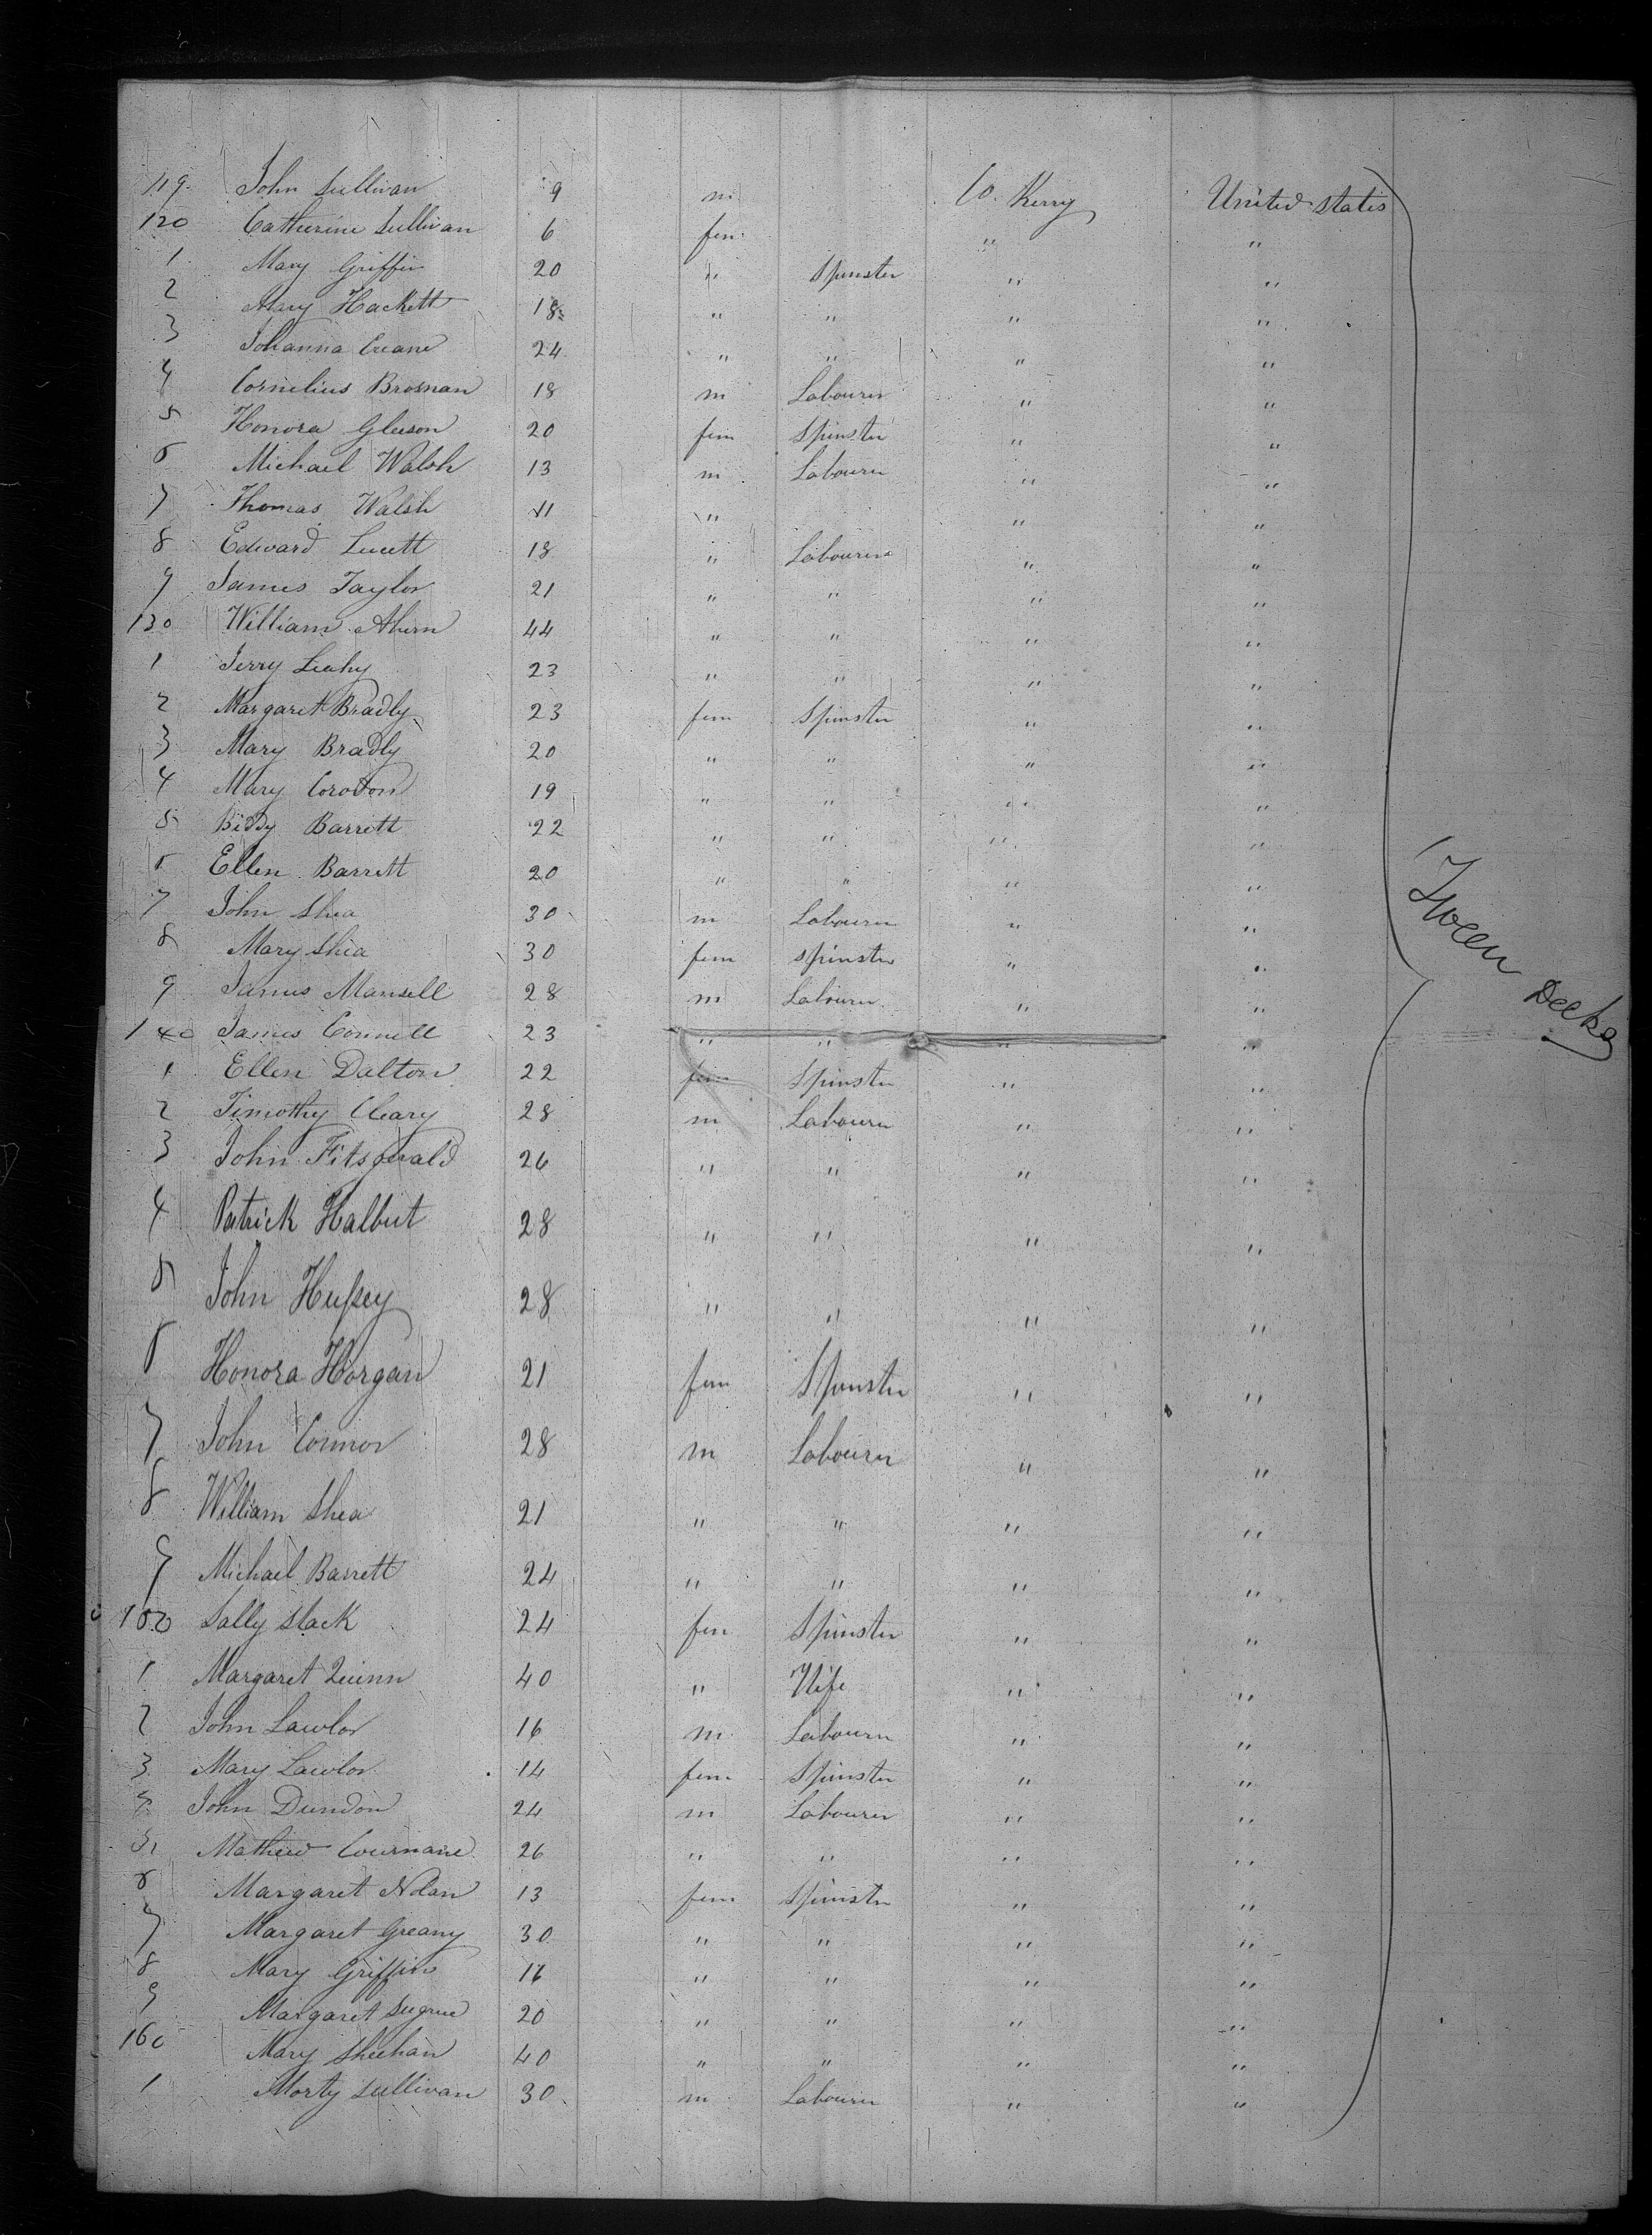 119 John Sullivan 9 m Co. Kerry United States
120 Catherine Sullivan 6 fem " "
1 Mary Griffin 20 " Spinster " "
2 Mary Hackett 18 " " " "
3 Johanna Creane 24 " " " "
4 Cornelius Brosnan 18 m Labourer " "
5 Honora Gleeson 20 fem Spinster " "
6 Michael Walsh 13 m Labourer " "
7 Thomas Walsh 11 " " "
8 Edward Lucett 18 " Labourer " "
9 James Taylor 21 " " " "
130 William Ahern 44 " " " "
1 Jerry Leahy 23 " " " "
2 Margaret Bradly 23 fem Spinster " "
3 Mary Bradly 20 " " " "
4 Mary Corodon 19 " " " "
5 Biddy Barrett 22 " " " "
6 Ellen Barrett 20 " " " "
7 John Shea 30 m Labourer " "
8 Mary Shea 30 fem Spinster " "
9 James Mansell 28 m Labourer " "
140 James Connell 23 " " " "
1 Ellen Dalton 22 fem Spinster " "
2 Timothy Cleary 28 m Labourer " "
3 John Fitsgerald 26 " " " "
4 Patrick Halbut 28 " " " "
5 John Hussey 28 " " " "
6 Honora Horgan 21 fem Spinster " "
7 John Connor 28 m Labourer " "
8 William Shea 21 " " " "
9 Michael Barrett 24 " " " "
150 Sally Slack 24 fem Spinster " "
1 Margaret Quinn 40 " Wife " "
2 John Lawlor 16 m Labourer " "
3 Mary Lawlor 14 fem Spinster " "
4 John Dundon 24 m Labourer " "
5 Mathew Cournane 26 " " " "
6 Margaret Nolan 13 fem Spinster " "
7 Margaret Greany 30 " " " "
8 Mary Griffin 16 " " " "
9 Margaret Sugrue 20 " " " "
160 Mary Sheehan 40 " " " "
1 Morty Sullivan 30 m Labourer " "
'Tween Decks